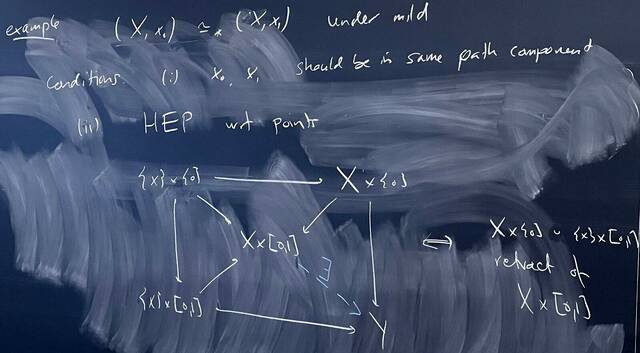 example (X, x₀) ≃* (X, x₁) under mild
conditions (i) x₀, x₁ should be in same path component
(ii) HEP wrt points
{x} × {0} X × {0}
X × [0,1]
∃
{x} × [0,1] Y
⟺ X × {0} ∪ {x} × [0,1]
retract of
X × [0,1]